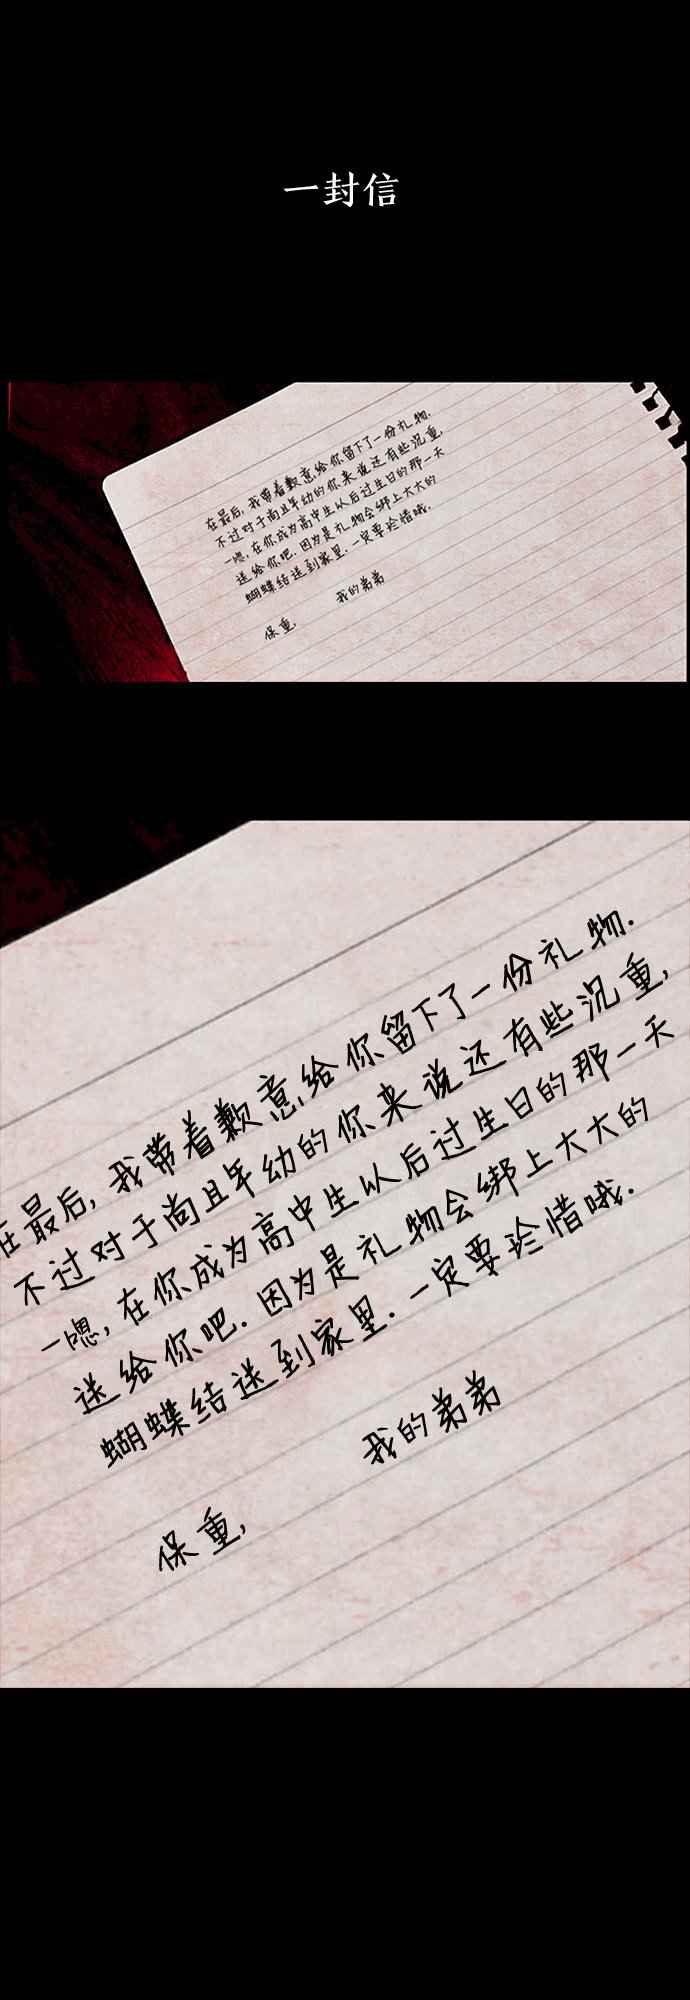 一封信
在最后, 我带着歉意给你留下了一份礼物.
不过对于尚且年幼的你来说还有些沉重,
一嗯, 在你成为高中生从后过生日的那一天
送给你吧. 因为是礼物会绑上大大的
蝴蝶结送到家里. 一定要珍惜哦.
我的弟弟
保重,
在最后, 我带着歉意给你留下了一份礼物.
不过对于尚且年幼的你来说还有些沉重,
一嗯, 在你成为高中生从后过生日的那一天
送给你吧. 因为是礼物会绑上大大的
蝴蝶结送到家里. 一定要珍惜哦.
我的弟弟
保重,